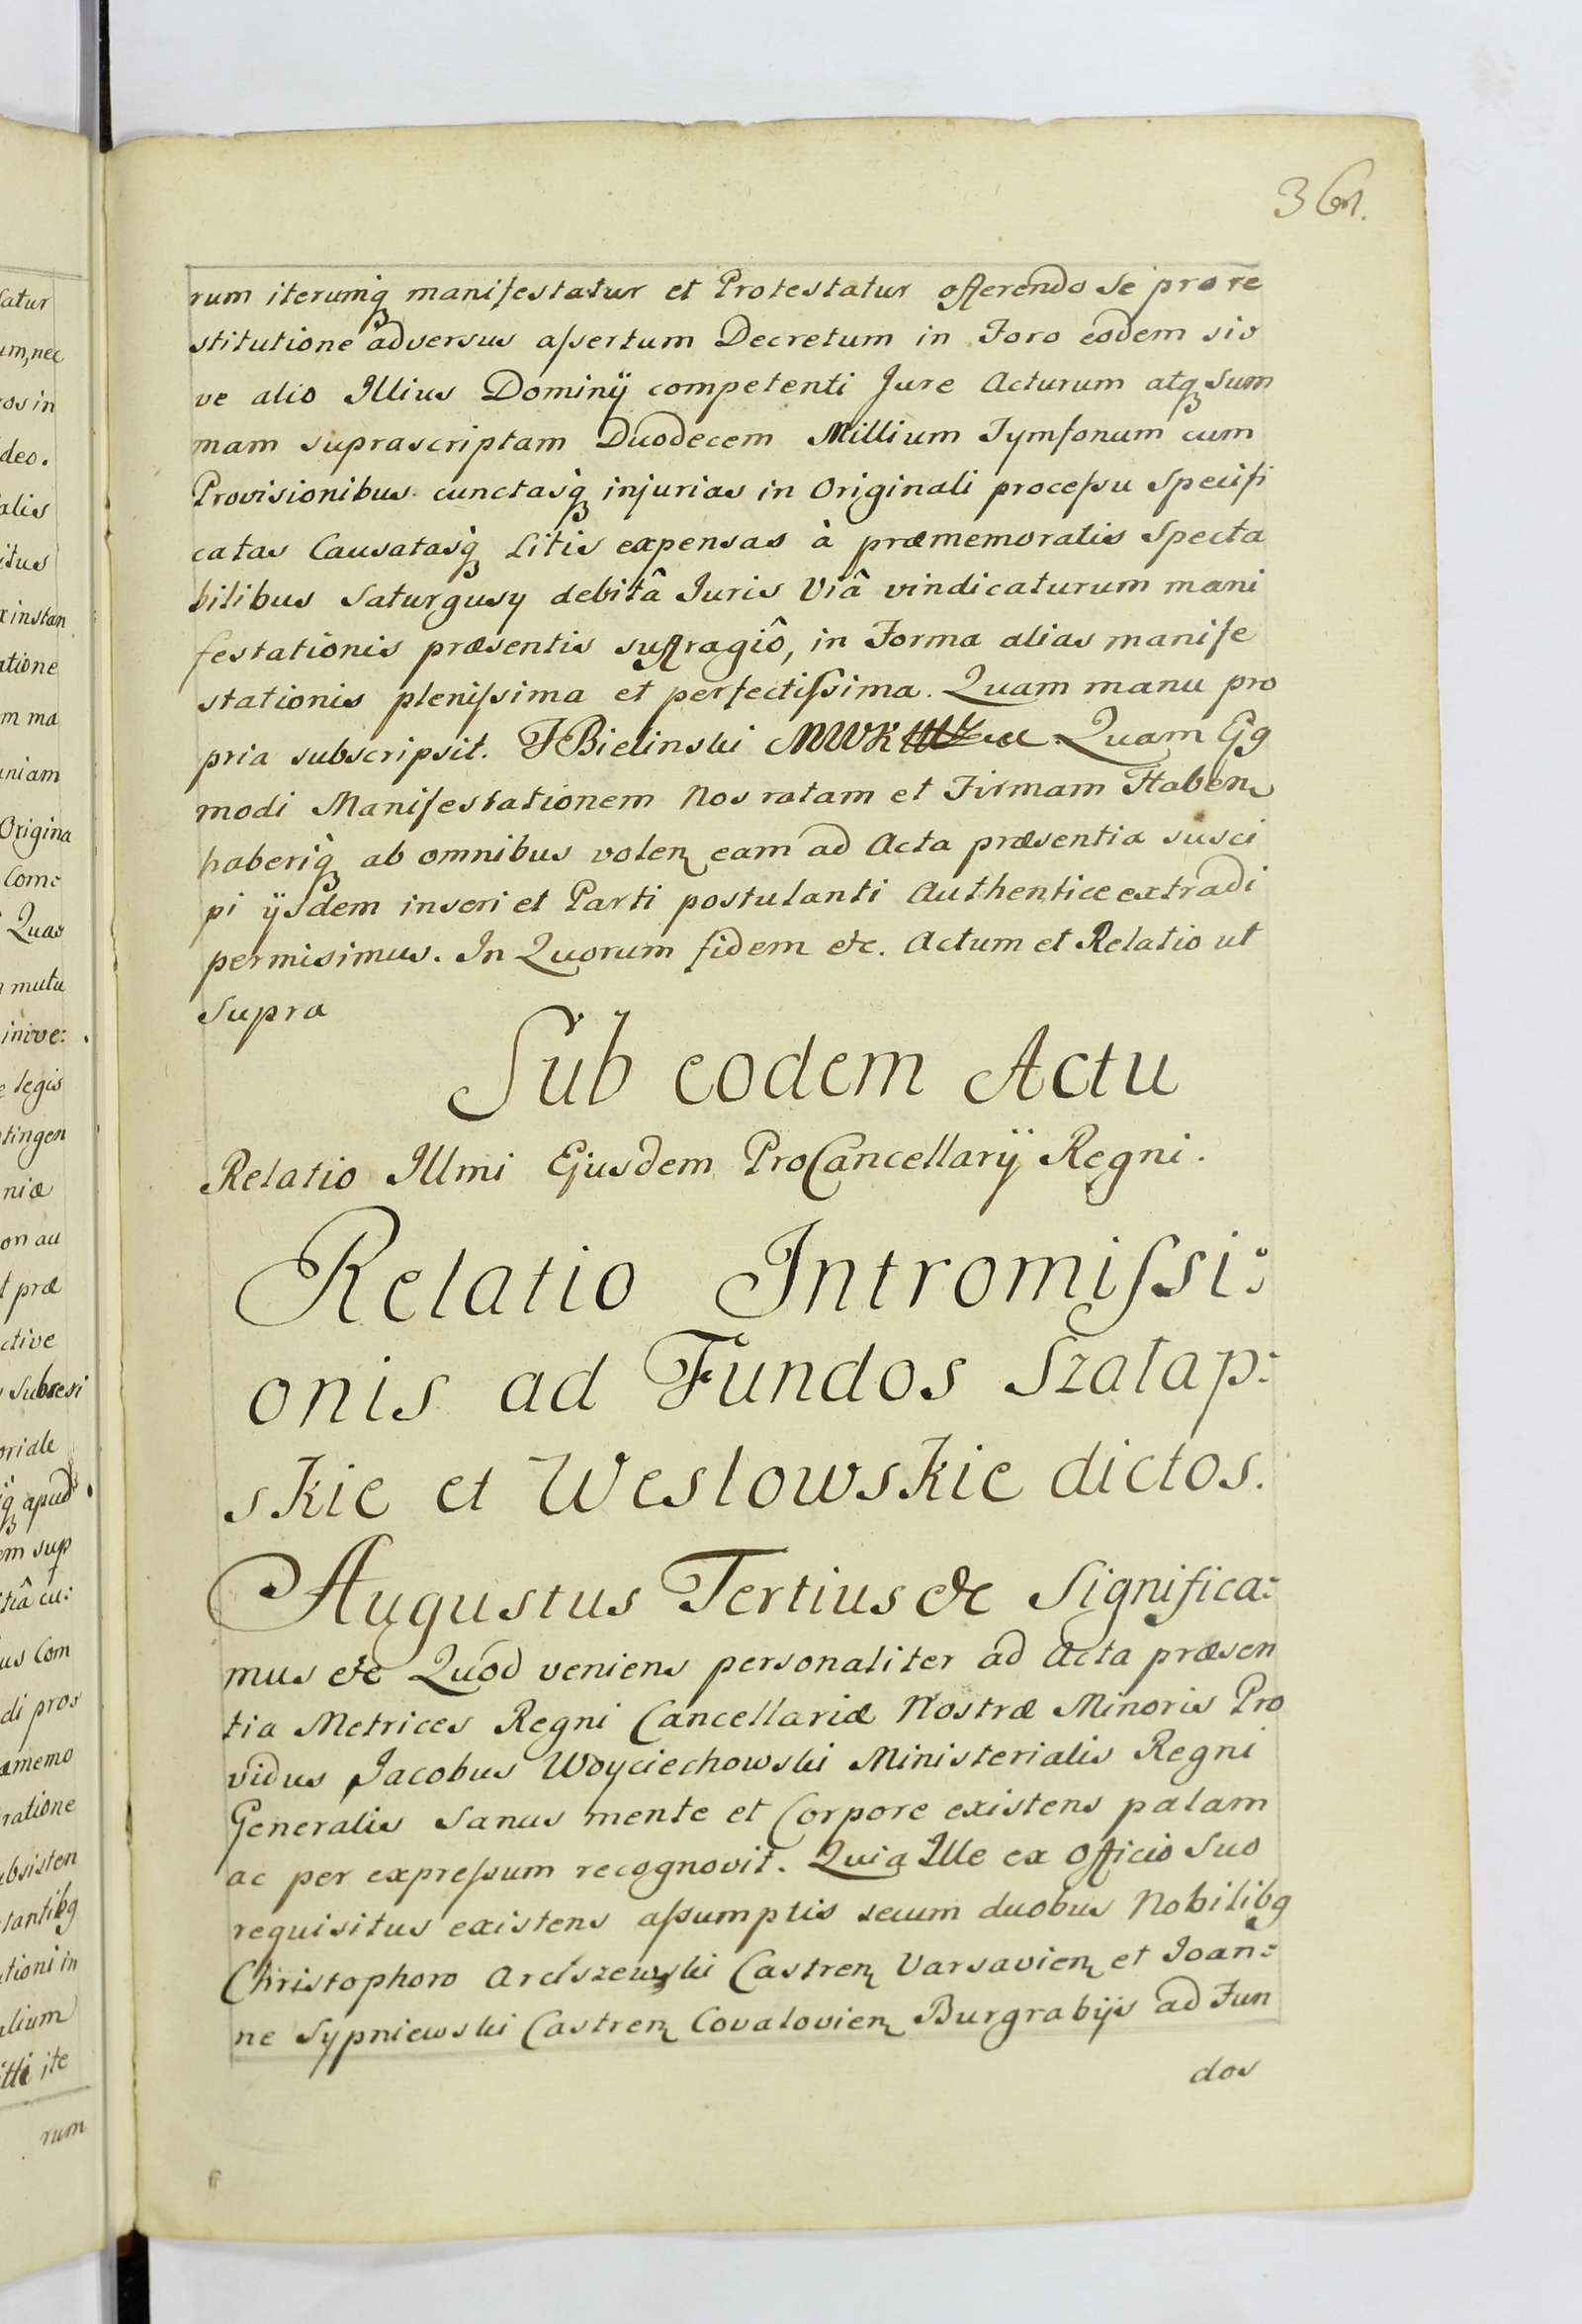 361.
rum iterumq manifestatur et Protestatur offerendo se pro re
stitutione adversus assertum Decretum in Foro eodem siv
ve alio Illius Dominÿ competenti Jure Acturum atq Sum
mam suprascriptam Duodecem Millium Tymfonum cum
Provisionibus cunctasq injurias in Originali processu Specifi
catas Causatasq Litis expensas à præmemoratis Specta
bilibus Saturgusy debitâ Iuris Viâ vindicaturum mani
festationis præsentis suffragiô, in Forma alias manife
stationis plenissima et perfectissima. Quam manu pro
pria subscripsit. F Bielinski MWK Quam Ejg
modi Manifestationem Nos ratam et Firmam Haben
haberiq ab omnibus volen eam ad Acta præsentia susci
pi ÿsdem inseri et Parti postulanti Authentice extradi
permisimus. In Quorum fidem etc. Actum et Relatio ut
Supra
Sub eodem Actu
Relatio Illmi Ejusdem ProCancellarÿ Regni.
Relatio Intromissi:
onis ad Fundos Szalap:
skie et Weslowskie dictos.
Augustus Tertius &c Significa:
mus etc Quod veniens personaliter ad Acta præsen
tia Metrices Regni Cancellariæ Nostræ Minoris Pro
vidus Jacobus Woyciechowski Ministerialis Regni
Generalis Sanus mente et Corpore existens palam
ac per expressum recognovit. Quia Ille ex Officio Suo
requisitus existens assumptis secum duobus Nobilibg
Christophoro Arciszewski Castren Varsavien et Joan:
ne Sypniewski Castren Covalovien Burgrabÿs ad Fun
dos
latur
um, nec
ros in
deo.
alis
itus
x instan
atione
m ma
uniam
Origina
Come
Quas
mutu
inive:
e legis
tingen
niæ
on au
t præ
ctive
Subresi
oriale
q apud
em sup
tiâ cu:
us Com
di pros
amemo
ratione
ubsisten
tantibg
ationi in
alium
itti ite
rum